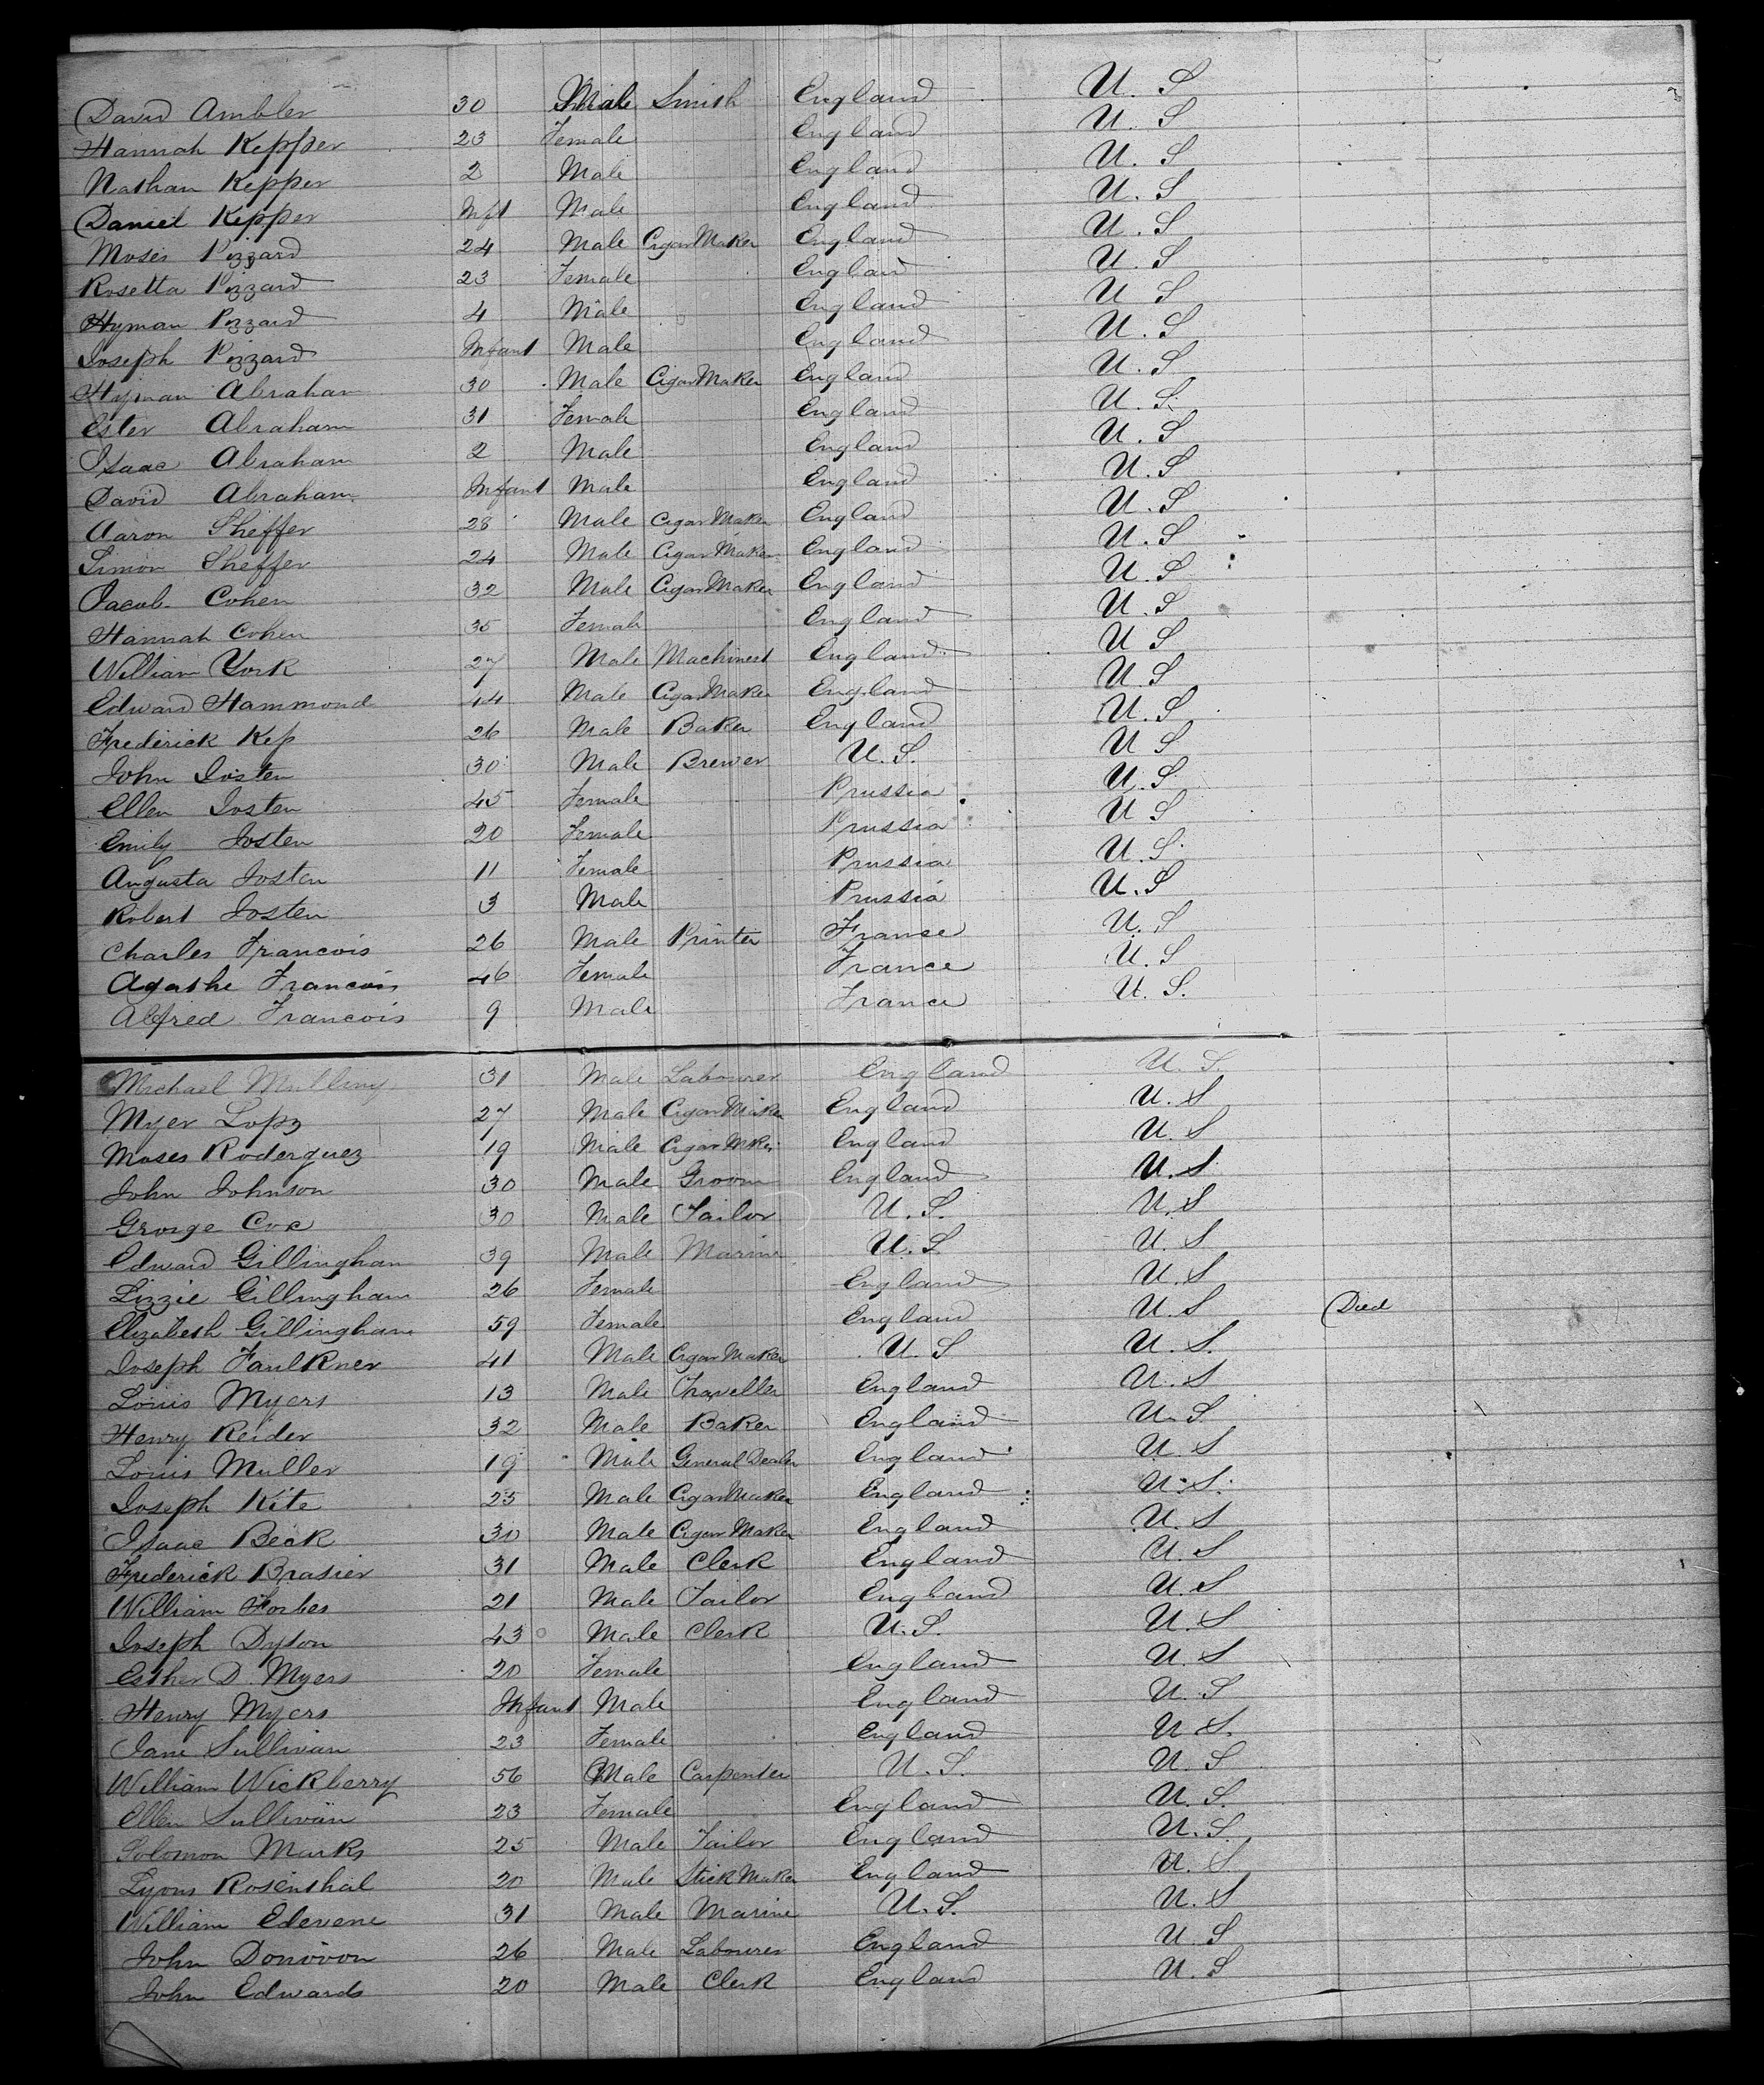 David Ambler 30 Male Smith England U. S
Hannah Kepper 23 Female England U. S
Nathan Kepper 2 Male England U. S
Daniel Kepper Inft Male England U. S
Moses Pizzard 24 Male Cigar Maker England U. S
Rosetta Pizzard 23 Female England U. S
Hyman Pizzard 4 Male England U S
Joseph Pizzard Infant Male England U. S
Hyman Abraham 30 Male Cigar Maker England U. S
Ester Abraham 31 Female England U. S.
Isaac Abraham 2 Male England U. S
David Abraham Infant Male England U. S
Aaron Sheffer 28 Male Cigar Maker England U. S
Simon Sheffer 24 Male Cigar Maker England U. S
Jacob Cohen 32 Male Cigar Maker England U. S
Hannah Cohen 35 Female England U. S
William York 27 Male Machinest England U S
Edward Hammond 44 Male Cigar Maker England U. S
Frederick Kep 26 Male Baker England U. S
John Josten 30 Male Brewer U. S. U S
Ellen Josten 45 Female Prussia U. S
Emily Josten 20 Female Prussia U S
Augusta Josten 11 Female Prussia U. S.
Robert Josten 3 Male Prussia U. S
Charles Francois 26 Male Printer France U. S
Agathe Francois 46 Female France U. S
Alfred Francois 9 Male France U. S.
Michael 31 Male Labourer England U. S.
Myer Lopz 27 Male Cigar Maker England U. S
Moses Roderquez 19 Male Cigar Maker England U. S
John Johnson 30 Male Groom England U. S
George Cox 30 Male Tailor U. S. U. S
Edward Gillingham 39 Male Marine U. S. U. S
Lizzie Gillingham 26 Female England U. S
Elizabeth Gillingham 59 Female England U. S Died
Joseph Faulkner 41 Male Cigar Maker U. S U. S.
Louis Myers 13 Male Traveller England U. S
Henry Reider 32 Male Baker England U. S.
Louis Muller 19 Male General Dealer England U. S
Joseph Kite 25 Male Cigar Maker England U. S.
Isaac Beck 30 Male Cigar Maker England U. S
Frederick Brasier 31 Male Clerk England U. S
William Forbes 21 Male Tailor England U. S
Joseph Dyson 43 Male Clerk U. S. U. S
Esther D. Myers 20 Female England U. S
Henry Myers Infant Male England U. S
Jane Sullivan 23 Female England U S.
William Wickberry 56 Male Carpenter U. S. U. S
Ellen Sullivan 23 Female England U. S.
Solomon Marks 25 Male Tailor England U. S.
Lyons Rosenthal 20 Male Stick Maker England U. S
William Edevene 31 Male Marine U. S. U. S
John Donovon 26 Male Labourer England U. S
John Edwards 20 Male Clerk England U. S